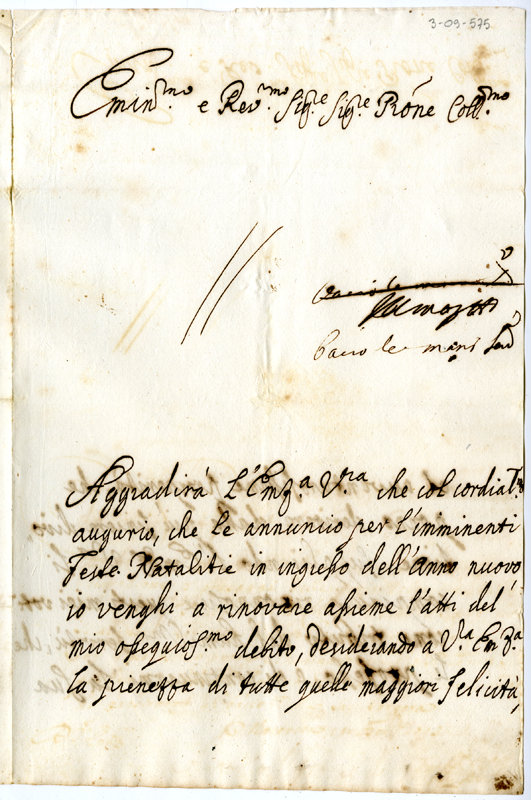 3-09-575
Emin.mo e Rev.mo Sig.re Sig.re Prone Coll.mo
bacio le mani
Bacio le mani
Aggradirà L'Emza Vra che col cordial.mo
augurio, che le annuncio per l'imminenti
Feste Natalitie in ingresso dell'Anno nuovo,
io venghi a rinovare assieme l'atti del
mio ossequios.mo debito, desiderando a V.ra Emza
la pienezza di tutte quelle maggiori felicità,